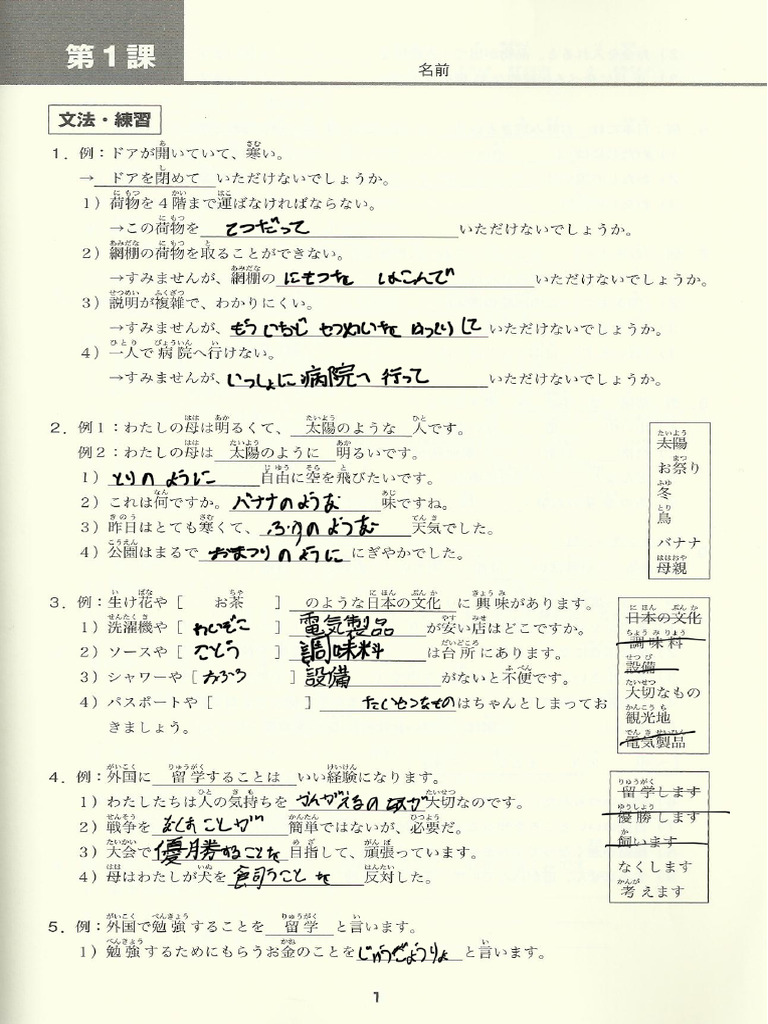 第１課
名前
文法・練習
１．例：ドアが開いていて、寒い。
→ ドアを閉めて いただけないでしょうか。
１）荷物を４階まで運ばなければならない。
→この荷物を てつだって いただけないでしょうか。
２）網棚の荷物を取ることができない。
→すみませんが、網棚の にもつを はこんで いただけないでしょうか。
３）説明が複雑で、わかりにくい。
→すみませんが、もう いちど せつめいを ゆっくり して いただけないでしょうか。
４）一人で病院へ行けない。
→すみませんが、いっしょに 病院へ 行って いただけないでしょうか。
２．例１：わたしの母は明るくて、 太陽のような 人です。
例２：わたしの母は 太陽のように 明るいです。
１） とりの ように 自由に空を飛びたいです。
２）これは何ですか。 バナナのような 味ですね。
３）昨日はとても寒くて、 ふゆのような 天気でした。
４）公園はまるで おまつりのように にぎやかでした。
太陽
お祭り
冬
鳥
バナナ
母親
３．例：生け花や［ お茶 ］ のような日本の文化 に興味があります。
１）洗濯機や［ れいぞこ ］ 電気製品 が安い店はどこですか。
２）ソースや［ さとう ］ 調味料 は台所にあります。
３）シャワーや［ おふろ ］ 設備 がないと不便です。
４）パスポートや［ ］ たいせつなもの はちゃんとしまってお
きましょう。
日本の文化
調味料
設備
大切なもの
観光地
電気製品
４．例：外国に 留学することは いい経験になります。
１）わたしたちは人の気持ちを かんがえるの が大切なのです。
２）戦争を なくすことが 簡単ではないが、必要だ。
３）大会で 優勝することを 目指して、頑張っています。
４）母はわたしが犬を 飼うことを 反対した。
留学します
優勝します
飼います
なくします
考えます
５．例：外国で勉強することを 留学 と言います。
１）勉強するためにもらうお金のことを じゅうぎょうりょ と言います。
1